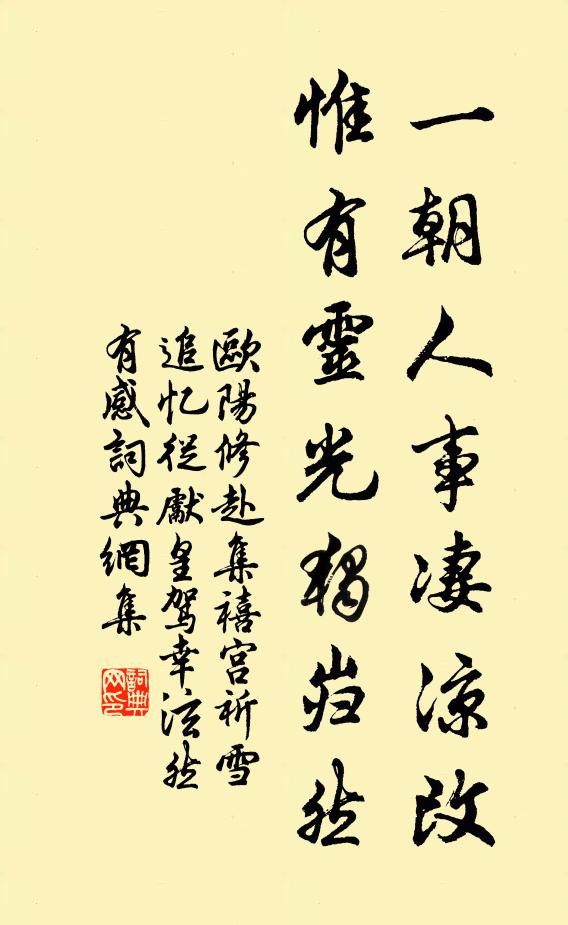 一朝人事凄凉改
惟有靈光獨岿然
歐陽修赴集禧宫祈雪
追忆從獻皇駕幸泫然
有感詞典網集
詞典
网印